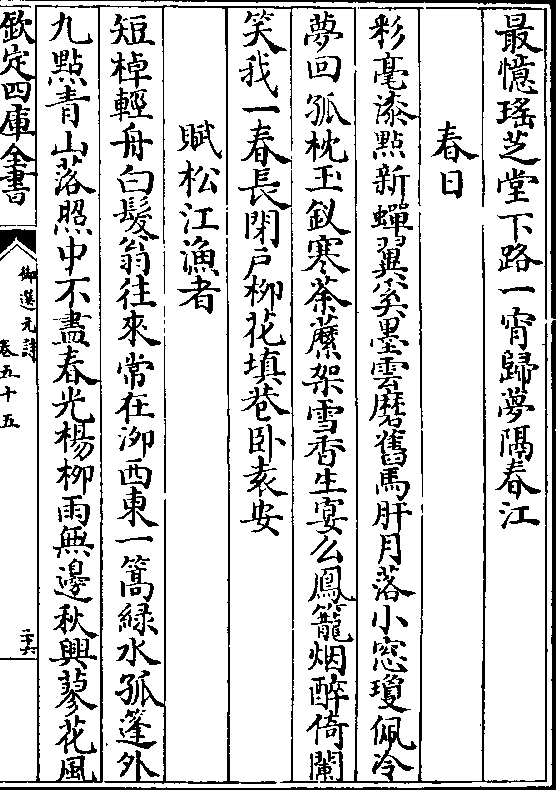 最憶瑤芝堂下路一宵歸夢隔春江
春日
彩毫漆點新蟬翼奚墨雲磨舊馬肝月落小窓瓊佩冷
夢回孤枕玉釵寒荼䕷架雪香生宴么鳳籠烟醉倚闌
笑我一春長閉戸柳花填巷卧袁安
賦松江漁者
短棹輕舟白髮翁往來常在泖西東一篙緑水孤篷外
九點青山落照中不盡春光楊柳雨無邊秋興蓼花風
欽定四庫全書
御選元詩
卷五十五
二十六